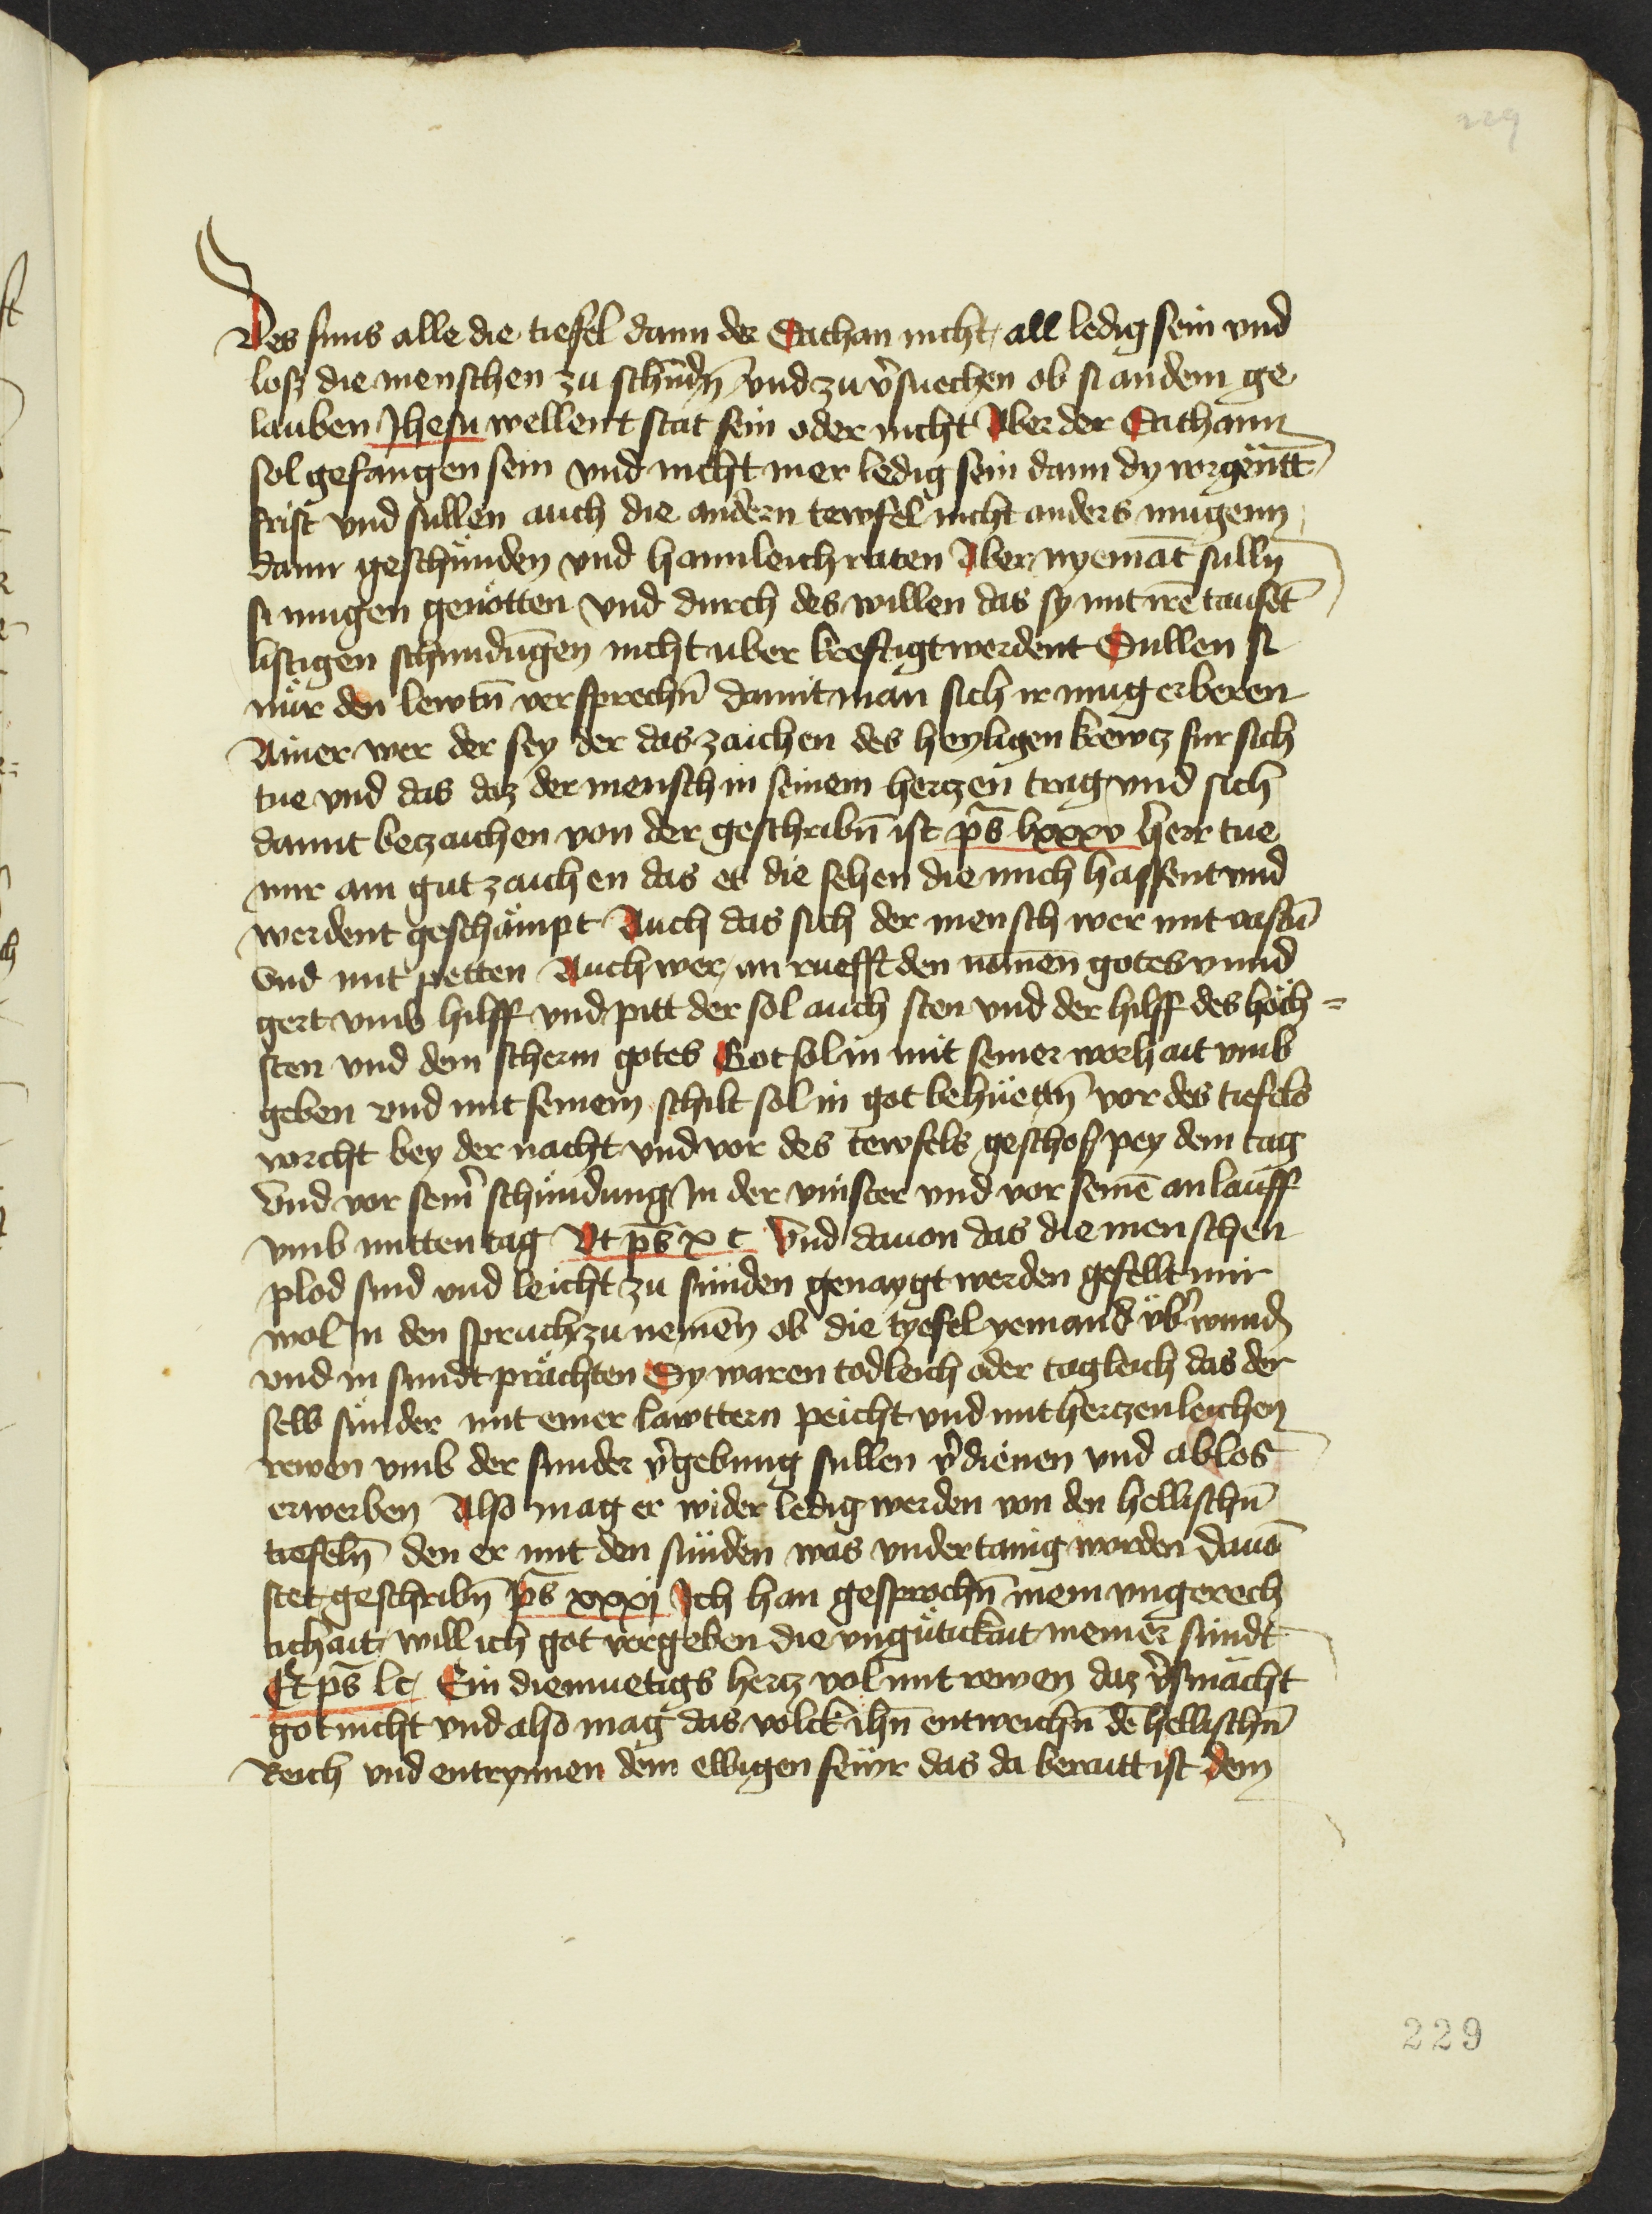 229
Des suns alle die tiefel dann der Sathan nicht all ledig sein vnd
losz die menschen zu schündn̄ vnd zu v̉suechen ob si an dem ge
lauben Jhesu wellent stät sein oder nicht Aber der Sathann
sol gefangen sein vnd nicht mer ledig sein dann dy vorgenātt
frist vnd sullen auch die andern tewfel nicht anders mugenn
dann geschünden vnd hamleich raten Aber nyemāt sulln̄
si mugen genötten vnd durch des willen das sy mit irē tausēt
listigen schundūgen nicht uber kreftigt werdent Sullen si
nür den lewtn̄ versprechn̄ damit man sich ir mug erberen
Ainer wer der sey der das zaichen des heyligen krewcz fur sich
tue vnd das daz der mensch in seinem herczen trag vnd sich
damit beczaichen von der geschribn̄ ist ps̄ lxxxv herr tue
mir ain gut zaichen das es die sehen die mich hassent vnd
werdent geschämpt Auch das sich der mensch wer mit vastn̄
vnd mit petten Auch wer an rüefft den namen̄ gotes vnnd
gert vmb hilff vnd pitt der sol auch sten vnd der hilff des höch=
sten vnd dem scherm gotes Got sol in mit seiner worhait vmb
geben vnd mit seinem schilt sol in got behüettn̄ vor des tiefels
vorcht bey der nacht vnd vor des tewfels geschosz pey dem tag
Vnd vor sein̉ schündung In der vinster vnd vor seinē anlauff
vmb mitten tag Vt ps̄ x c Vnd dauon das die menschen
plöd sind vnd leicht zu sünden genaygt werden gefellt mir
wol In den spruch zu nemen̄ ob die tyefel yemand vb̉wundn̄
vnd in sundt prächten Sy waren todleich oder tagleich das der
selb sünder mit einer lawttern peicht vnd mit herczenleichen
rewen vmb der sunder v̉gebung sullen v̉dienen vnd ablos
erwerben Also mag er wider ledig werden von den hellischn̄
tiefeln̄ den er mit den sünden was vndertanig worden dauō
stet geschribn̄ ps̄ xxxj Ich han gesprochn̄ mein vngerech
tichait will ich got vergeben die vngütikait meiner sündt
Et ps̄ lc Ein diemuetigs hercz vol mit rewen daz v̉smächt
got nicht vnd also mag das volck ihn̄ entweichn̄ dē hellischn̄
Reich vnd entrynnen dem ewigen fewr das da beraitt ist dem
229